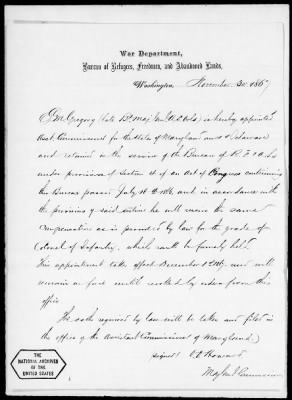 War Department,
Bureau of Refugees, Freedmen, and Abandoned Lands,
Washington, November 30 1867
E. M. Gregory (late Bt Maj Genl U.S. Vols) is hereby appointed
Asst. Commissioner for the States of Maryland and Delaware
and retained in the service of the Bureau of R. F & A. L.
under provisions of Section of an Act of Congress continuing
the Bureau passed July 16th 1866, and in accordance with
the provisions of said section he will receive the same
compensation as is provided by law for the grade of
Colonel of Infantry, which rank he formerly held.
This appointment takes effect December 1st 1867, and will
remain in force until revoked by orders from this
office
The oath required by law will be taken and filed in
the office of the Assistant Commissioner of Maryland.
signed O O Howard
Maj Genl Commissioner
THE
NATIONAL ARCHIVES
OF THE
UNITED STATES